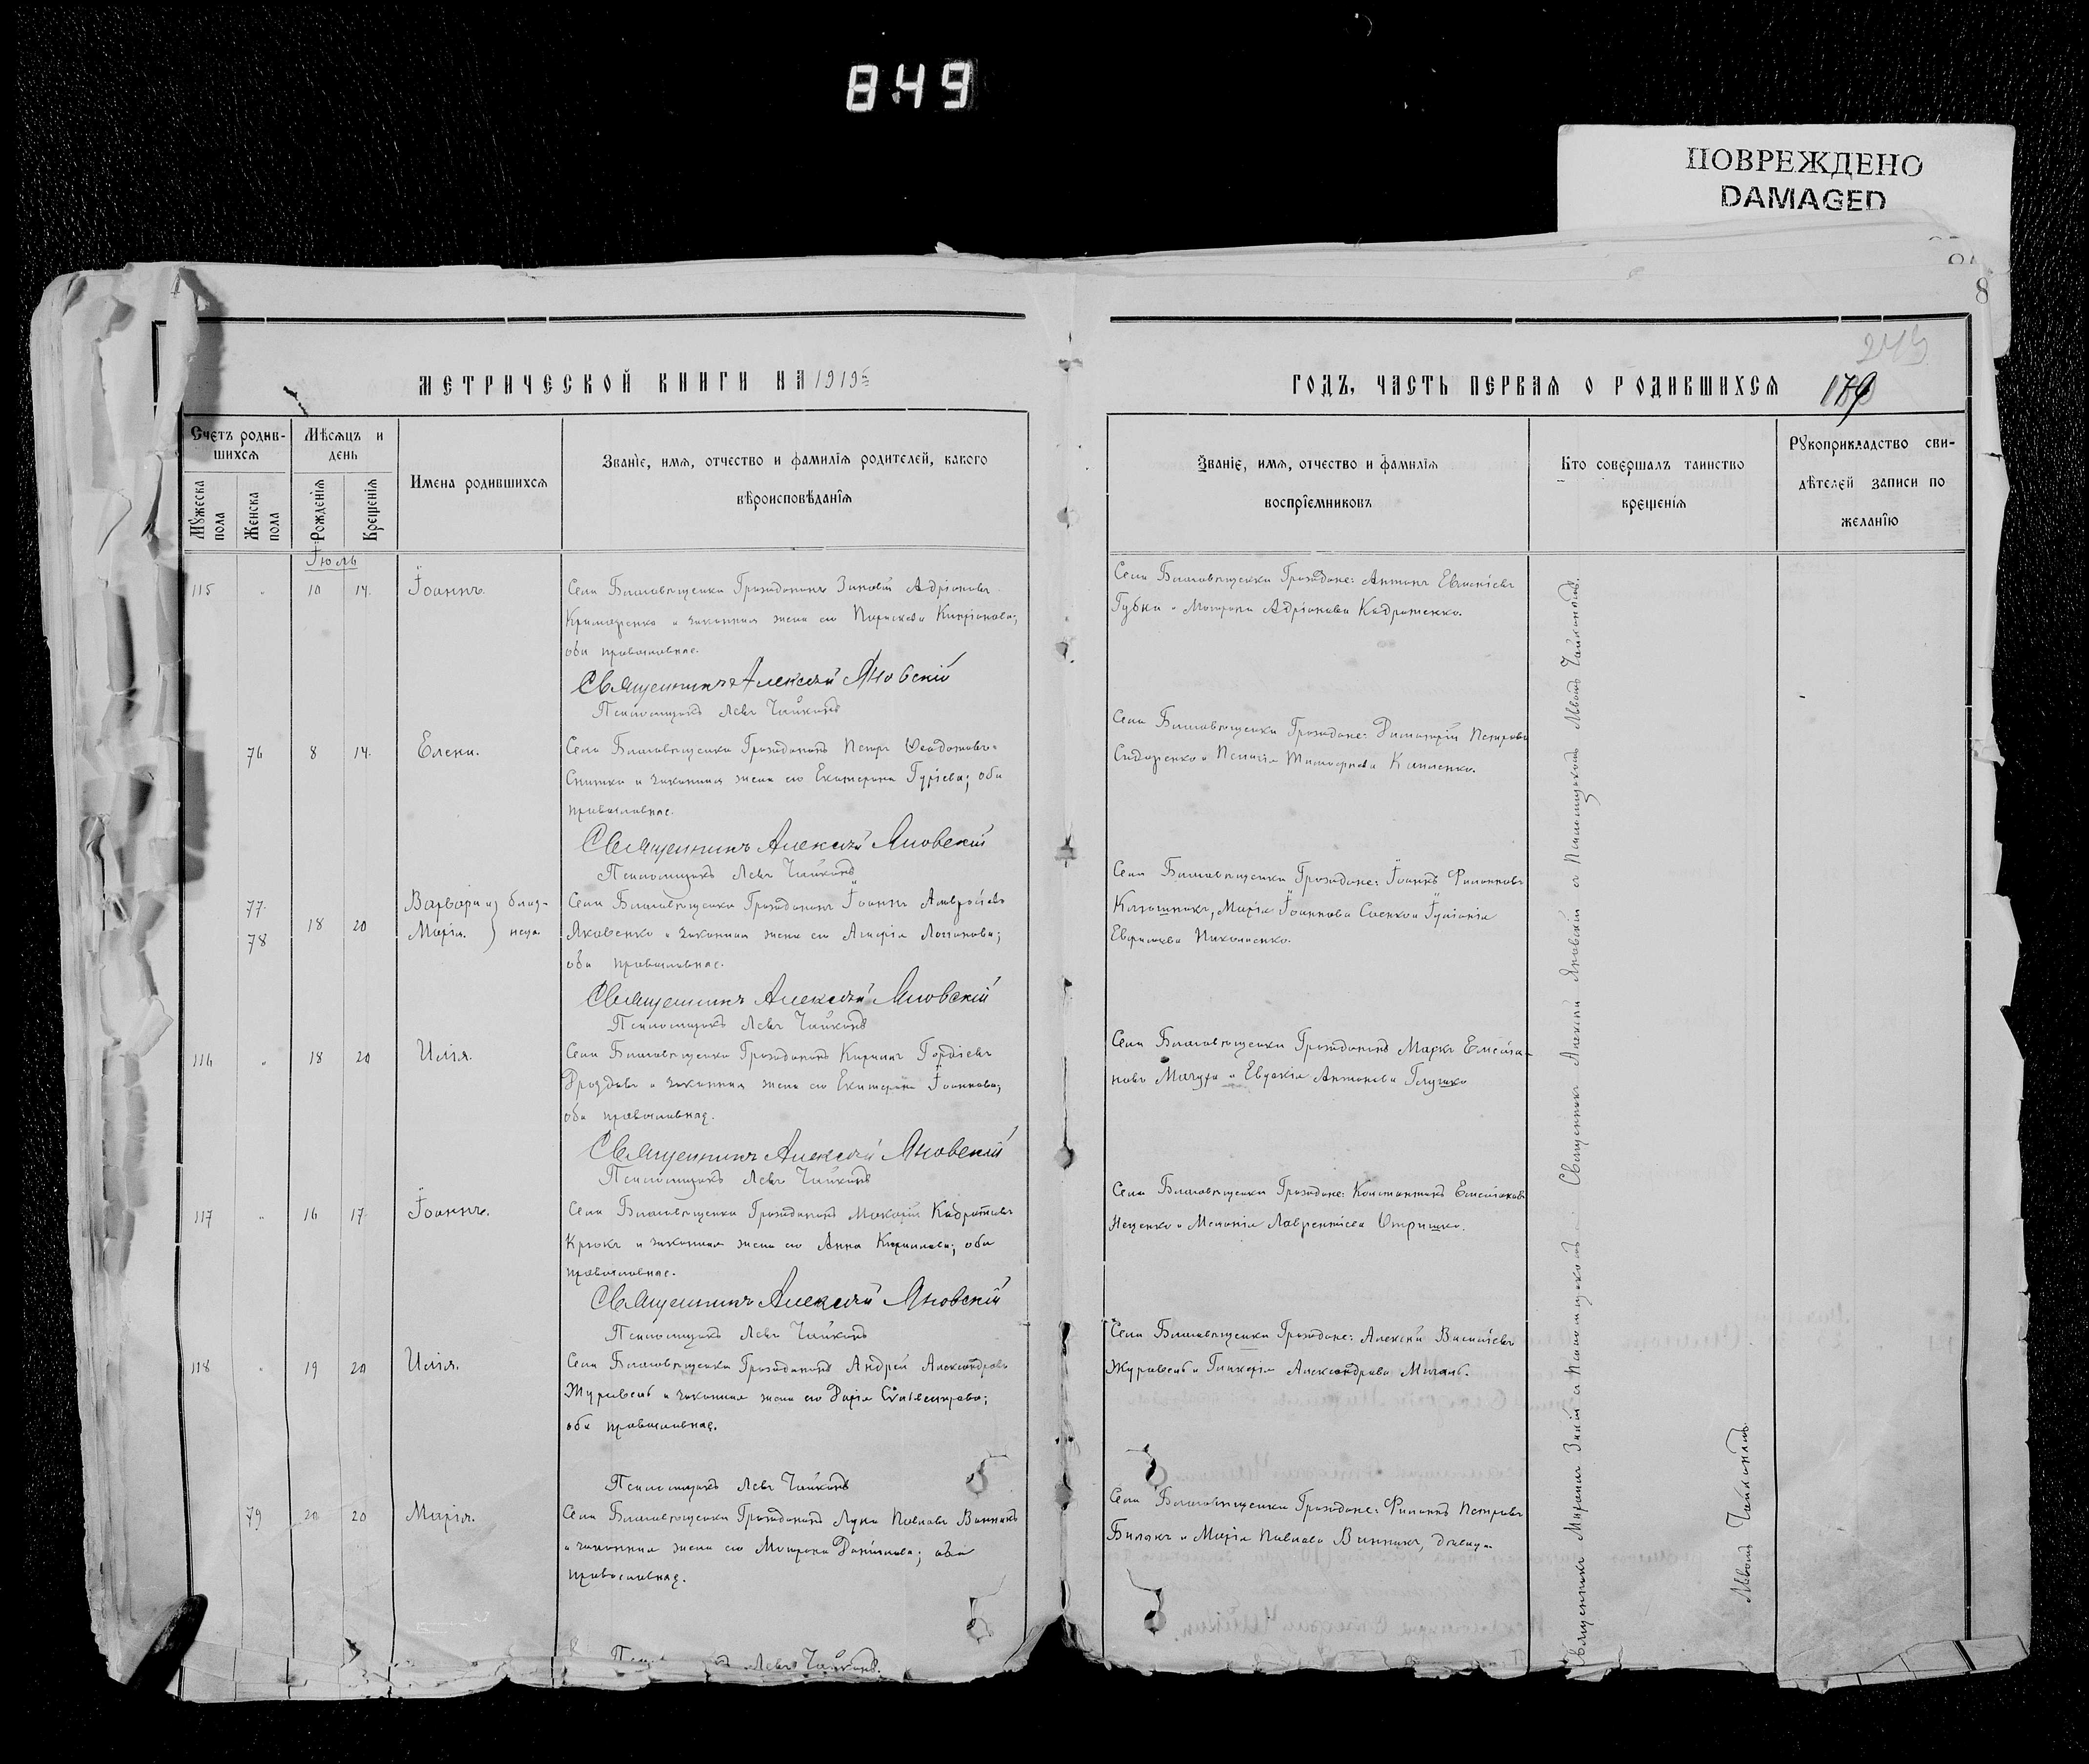 849
ПОВРЕЖДЕНО
DAMAGED
8
243
МЕТРИЧЕСКОЙ КНИГИ НА 1919й
Счетъ родив-
шихся
Мѣсяцъ и
день
Имена родившихся
Званіе, имя, отчество и фамилія родителей, какого
вѣроисповѣданія
Мужеска
пола
Женска
пола
Рожденія
Крещенія
Іюль
115 " 10 14. Іоаннъ.
Села Благовѣщенки Гражданинъ Зиновій Адріановъ
и законная жена его Параскева Кипріанова;
оба православные.
Священникъ Алексѣй Яновскій
Псаломщикъ Левъ Чайкинъ
76 8 14. Елена.
Села Благовѣщенки Гражданинъ Петръ Ѳеодотовъ
Снитко и законная жена его Екатерина Гуріева; оба
православные.
Священникъ Алексѣй Яновскій
Псаломщикъ Левъ Чайкинъ
77
78
18 20
Варвара и } близ-
Марія. } нецы
Села Благовѣщенки Гражданинъ Іоаннъ Амвросіевъ
Яковенко и законная жена его Агафія Логинова;
оба православные.
Священникъ Алексѣй Яновскій
Псаломщикъ Левъ Чайкинъ
116 " 18 20 Илія.
Села Благовѣщенки Гражданинъ Кириллъ Гордіевъ
Дроздовъ и законная жена его Екатерина Іоаннова;
оба православные.
Священникъ Алексѣй Яновскій
Псаломщикъ Левъ Чайкинъ
117 " 16 17 Іоаннъ.
Села Благовѣщенки Гражданинъ Макарій Кодратовъ
Крюкъ и законная жена его Анна Кириллова; оба
православные.
Священникъ Алексѣй Яновскій
Псаломщикъ Левъ Чайкинъ
118 " 19 20 Илія.
Села Благовѣщенки Гражданинъ Андрей Александровъ
Журавель и законная жена его Дарія Силвестрова;
оба православные.
Псаломщикъ Левъ Чайкинъ
79 20 20 Марія.
Села Благовѣщенки Гражданинъ Лука Павловъ Винникъ
и законная жена его Матрона Даніилова; оба
православные.
Левъ Чайкинъ.
ГОДЪ, ЧАСТЬ ПЕРВАЯ О РОДИВШИХСЯ 179
Званіе, имя, отчество и фамилія
воспріемниковъ
Кто совершалъ таинство
крещенія
Рукоприкладство сви-
дѣтелей записи по
желанію
Села Благовѣщенки Граждане: Антонъ Евменіевъ
Губка и Матрона Адріанова Кондратенко.
Села Благовѣщенки Граждане: Димитрій Петровъ
Сидоренко и Пелагія Тимофеева
Села Благовѣщенки Граждане: Іоаннъ Филипповъ
Калашникъ, Марія Іоаннова Саенко и Іуліанія
Николаенко.
Села Благовѣщенки Гражданинъ Маркъ Емелiа-
новъ Мачула и Евдокія Антонова Глушко
Села Благовѣщенки Граждане: Константинъ Емеліановъ
Нещенко и Меланія Лаврентіева
Села Благовѣщенки Граждане: Алексѣй Василіевъ
Журавель и Гликерія Александрова
Села Благовѣщенки Граждане: Филиппъ Петровъ
Билякъ и Марія Павлова Винникъ, дѣвица.
Священникъ Алексѣй Яновскій съ Псаломщикомъ Львомъ Чайкинымъ.
Священникъ съ Псаломщикомъ
Львомъ Чайкинымъ